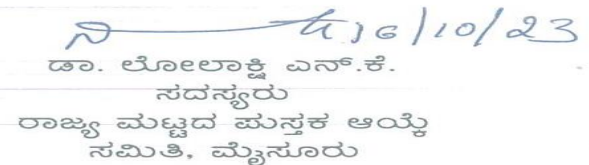 16/10/23
ಡಾ. ಲೋಲಾಕ್ಷಿ ಎನ್.ಕೆ.
ಸದಸ್ಯರು
ರಾಜ್ಯ ಮಟ್ಟದ ಪುಸ್ತಕ ಆಯ್ಕೆ
ಸಮಿತಿ, ಮೈಸೂರು